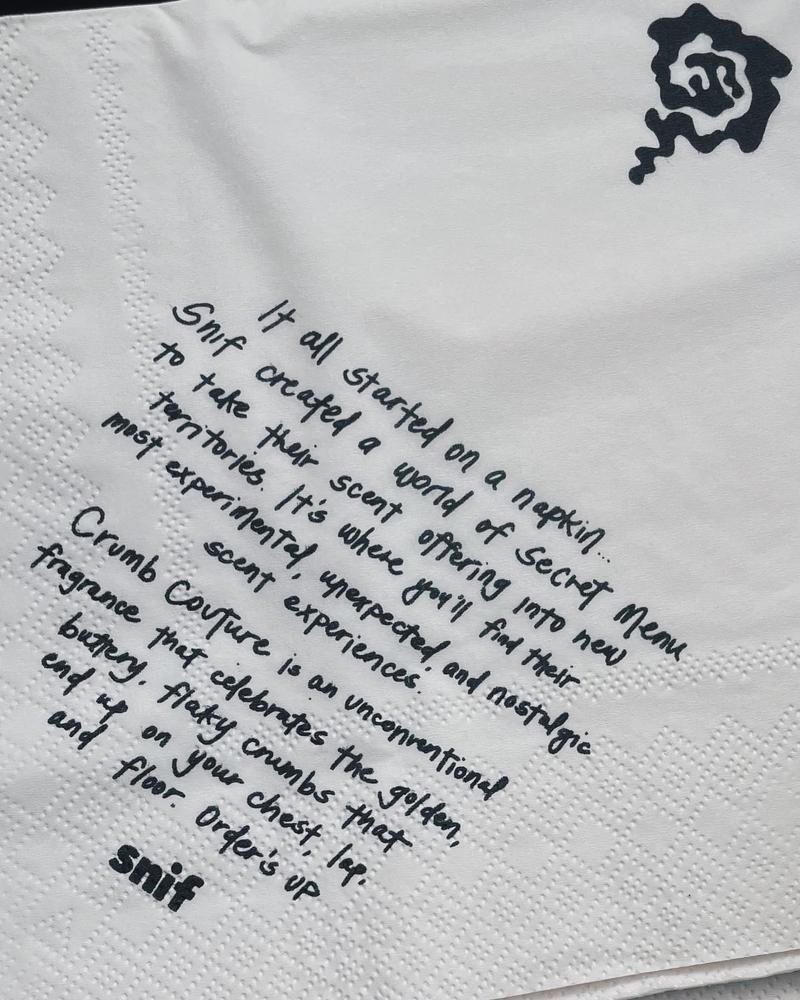 It all started on a napkin...
Snif created a world of Secret Menu
to take their scent offering into new
territories. It's where you'll find their
most experimental, unexpected, and nostalgic
scent experiences.
Crumb Couture is an unconventional
fragrance that celebrates the golden,
buttery, flaky crumbs that
end up on your chest, lap,
and floor. Order's up
snif